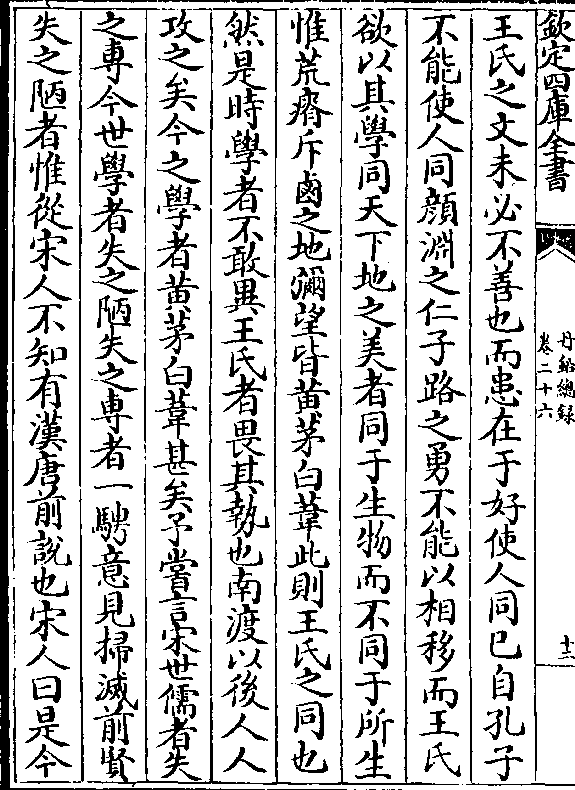 欽定四庫全書
丹鉛總録
卷二十六
十二
王氏之文未必不善也而患在于好使人同巳自孔子
不能使人同顔淵之仁子路之勇不能以相移而王氏
欲以其學同天下地之美者同于生物而不同于所生
惟荒瘠斥鹵之地彌望皆黄茅白葦此則王氏之同也
然是時學者不敢異王氏者畏其埶也南渡以後人人
攻之矣今之學者黄茅白葦甚矣予嘗言宋世儒者失
之專今世學者失之陋失之專者一騁意見掃滅前賢
失之陋者惟從宋人不知有漢唐前說也宋人曰是今